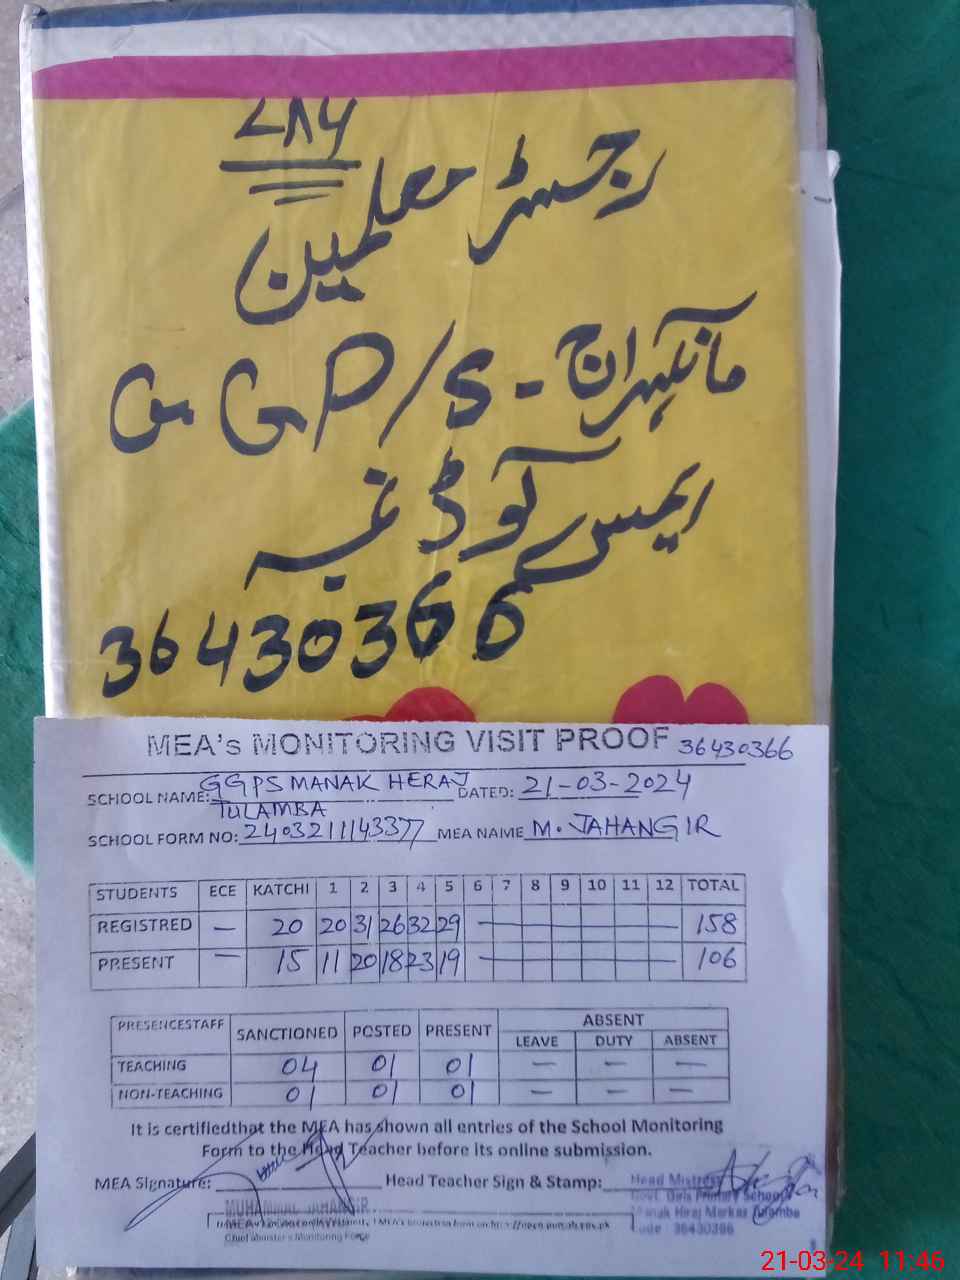 ۷۸۶
رجسٹر معلمین
GGP/S - مانکہراج
ایمس کوڈ نمبر
36430366
MEA's MONITORING VISIT PROOF 36430366
SCHOOL NAME: GGPS MANAK HERAJ TULAMBA DATED: 21-03-2024
SCHOOL FORM NO: 2403211143377 MEA NAME M. JAHANGIR
STUDENTS ECE KATCHI 1 2 3 4 5 6 7 8 9 10 11 12 TOTAL
REGISTRED — 20 20 31 26 32 29 — 158
PRESENT — 15 11 20 18 23 19 — 106
PRESENCESTAFF SANCTIONED POSTED PRESENT ABSENT
LEAVE DUTY ABSENT
TEACHING 04 01 01 — — —
NON-TEACHING 01 01 01 — — —
It is certifiedthat the MEA has shown all entries of the School Monitoring
Form to the Head Teacher before its online submission.
MEA Signature: Head Teacher Sign & Stamp:
Head Mistress
Govt. Girls Primary School
Manak Hiraj Markaz Tulamba
Code : 36430366
MUHAMMAD JAHANGIR
Chief Minister's Monitoring Force
21-03-24 11:46